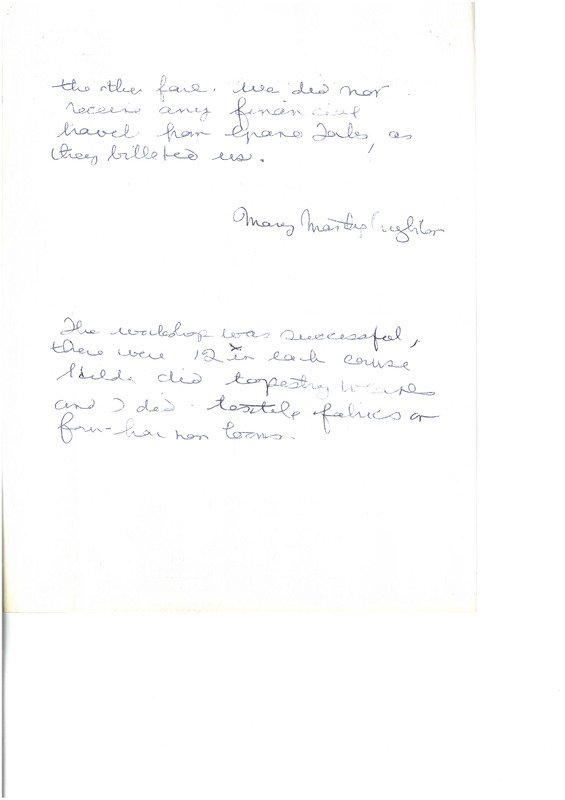 the other fare. We did not
receive any financial
travel from Grand Forks, as
they billeted us.
Mary
The workshop was successful,
there were 12 in each course
Hilde did tapestry weaves
and I did textile fabrics on
four-harness looms.